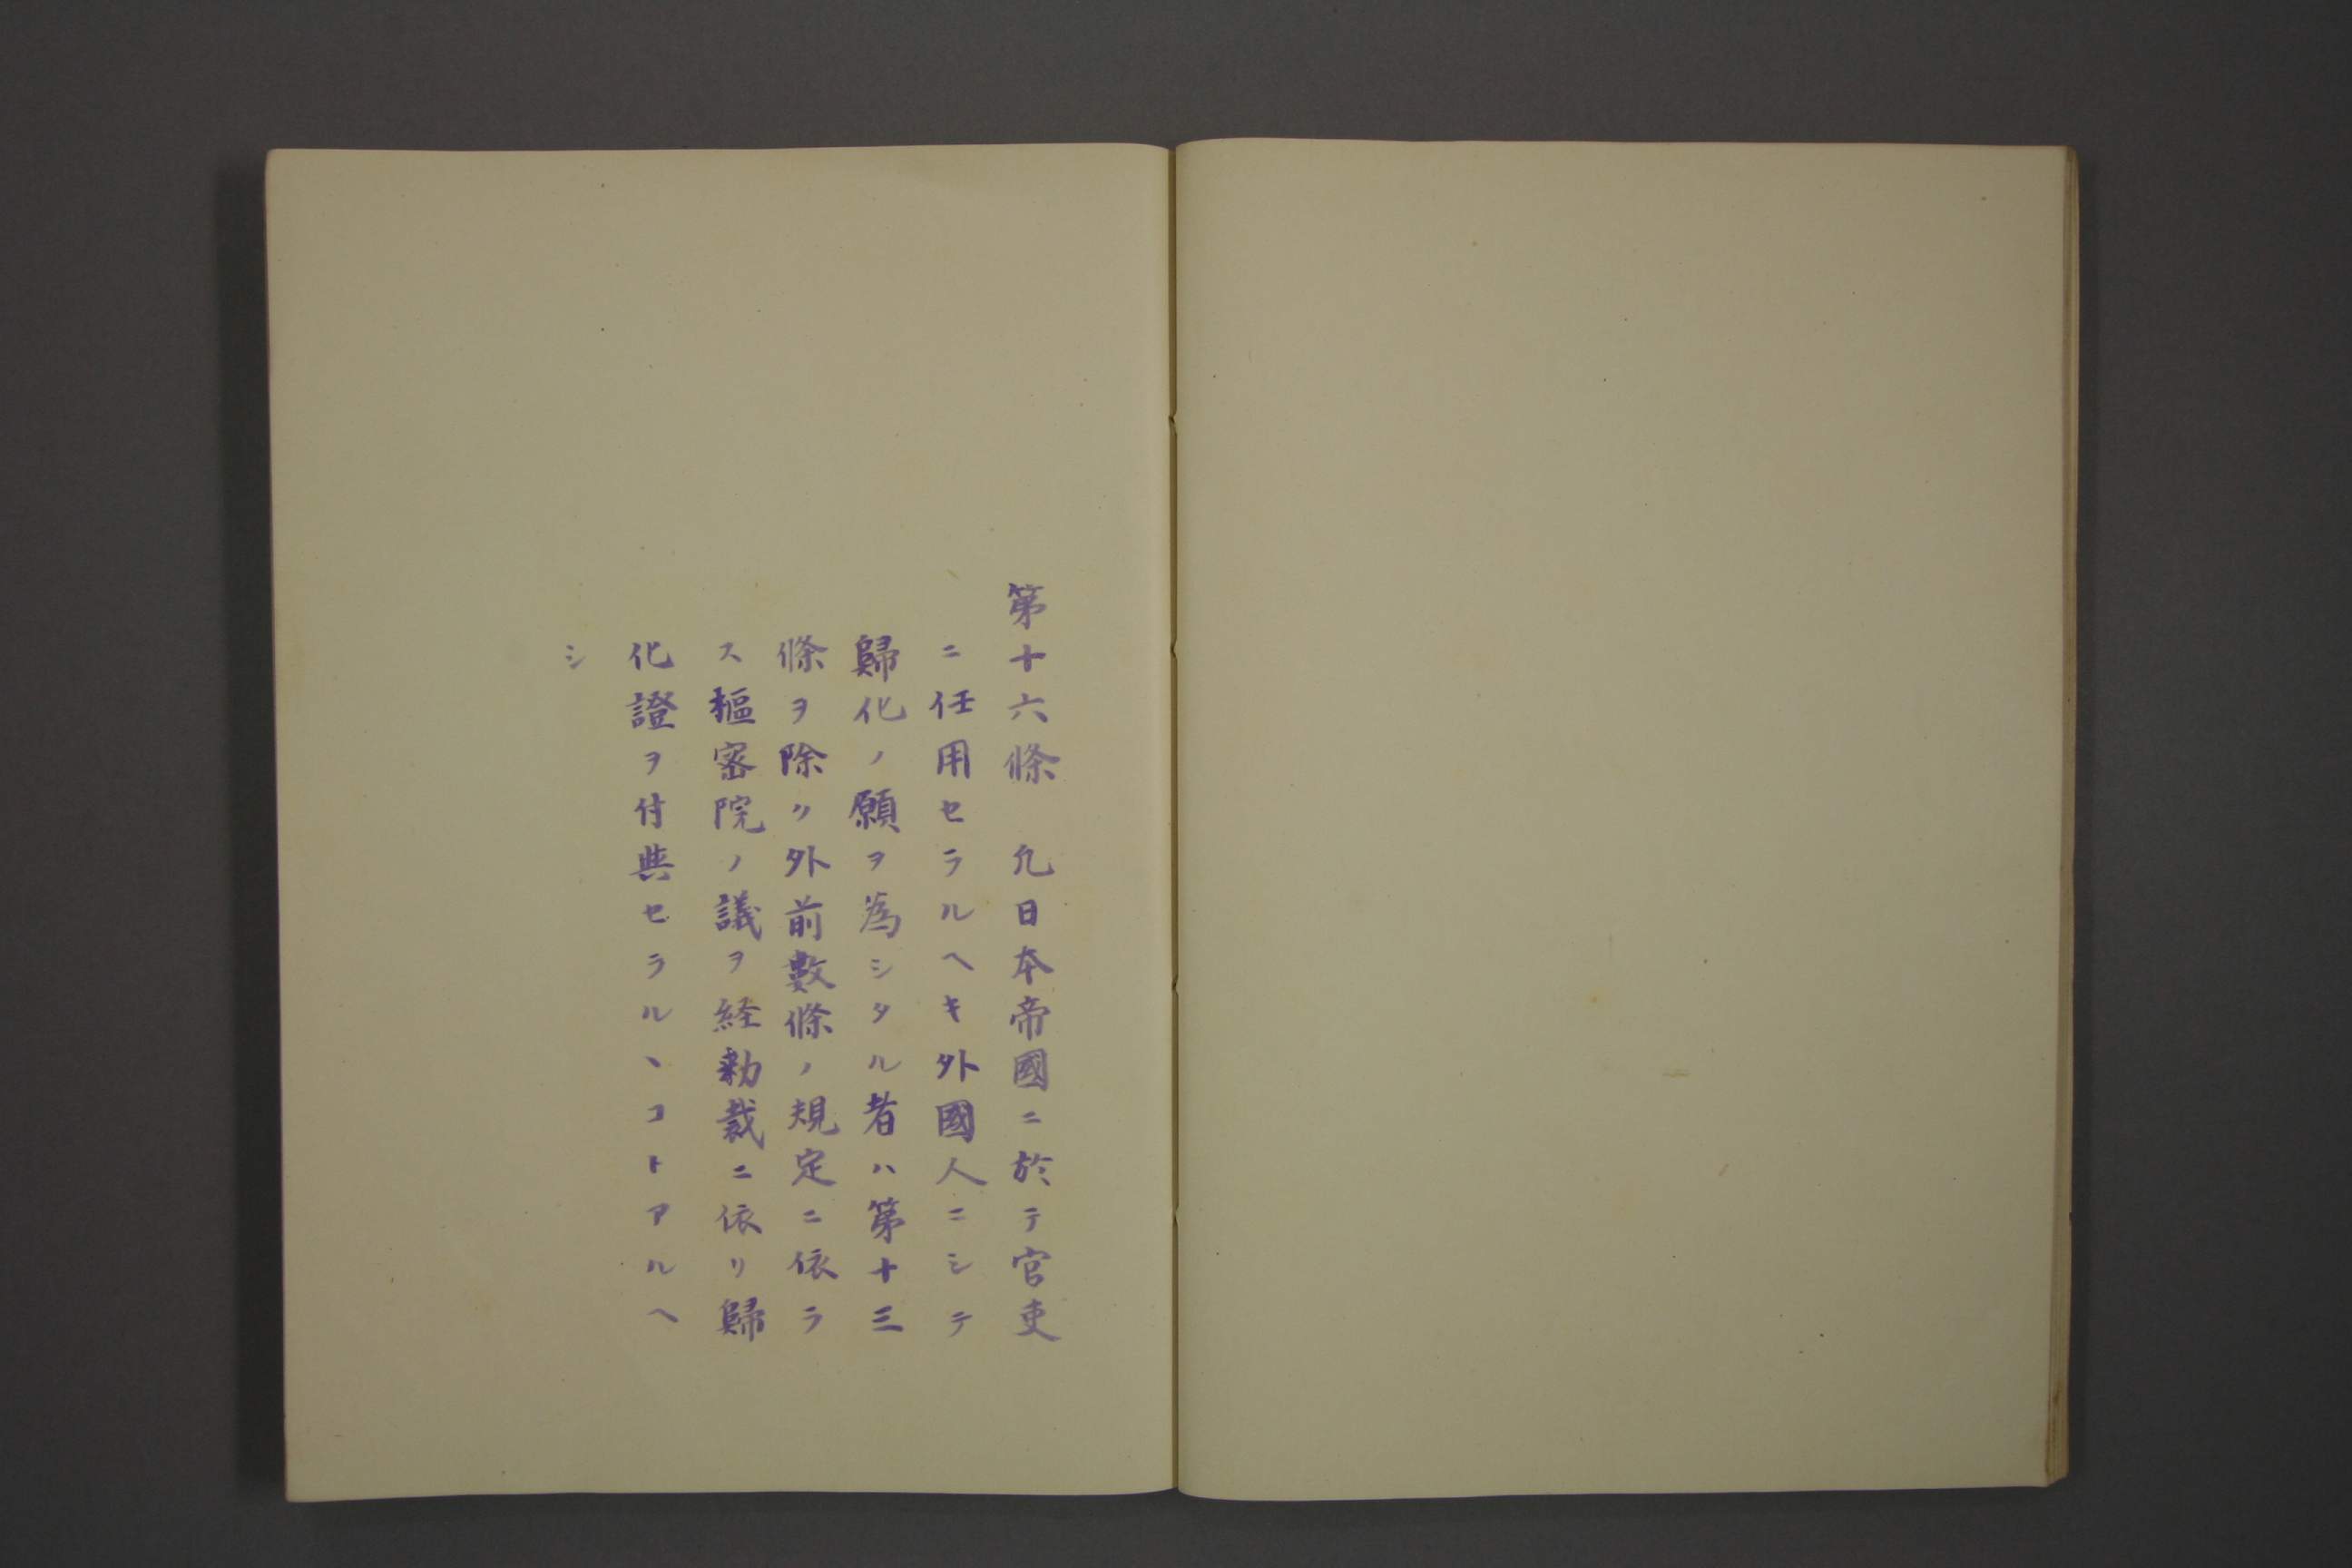 第十六條　凢日本帝國ニ於テ官吏
ニ任用セラルヘキ外國人ニシテ
歸化ノ願ヲ為シタル者ハ第十三
條ヲ除ク外前數條ノ規定ニ依ラ
ス樞密院ノ議ヲ経勅裁ニ依リ歸
化證ヲ付與セラルヽコトアルヘ
シ